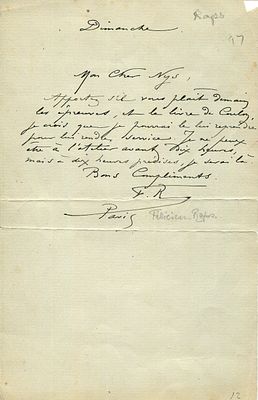 Rops
97
Dimanche
Mon Cher Nys,
Apportez s'il vous plaît demain
les épreuves, et le livre de
je crois que je pourrai le lui reprendre
pour lui rendre service. Je ne peux
être à l'atelier avant dix heures,
mais à dix heures précises, je serai là
Bons Compliments.
F. R
Paris
Félicien Rops.
12